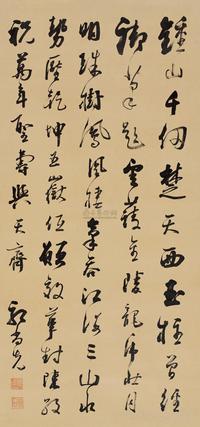 鍾山千仞楚天西玉輦曾經
御筆題雲護金陵龍虎壯月
明珠樹鳳凰棲氣吞江海三山小
勢壓乾坤五嶽低願效華封陳敬
祝萬年聖壽與天齊 郭尚先